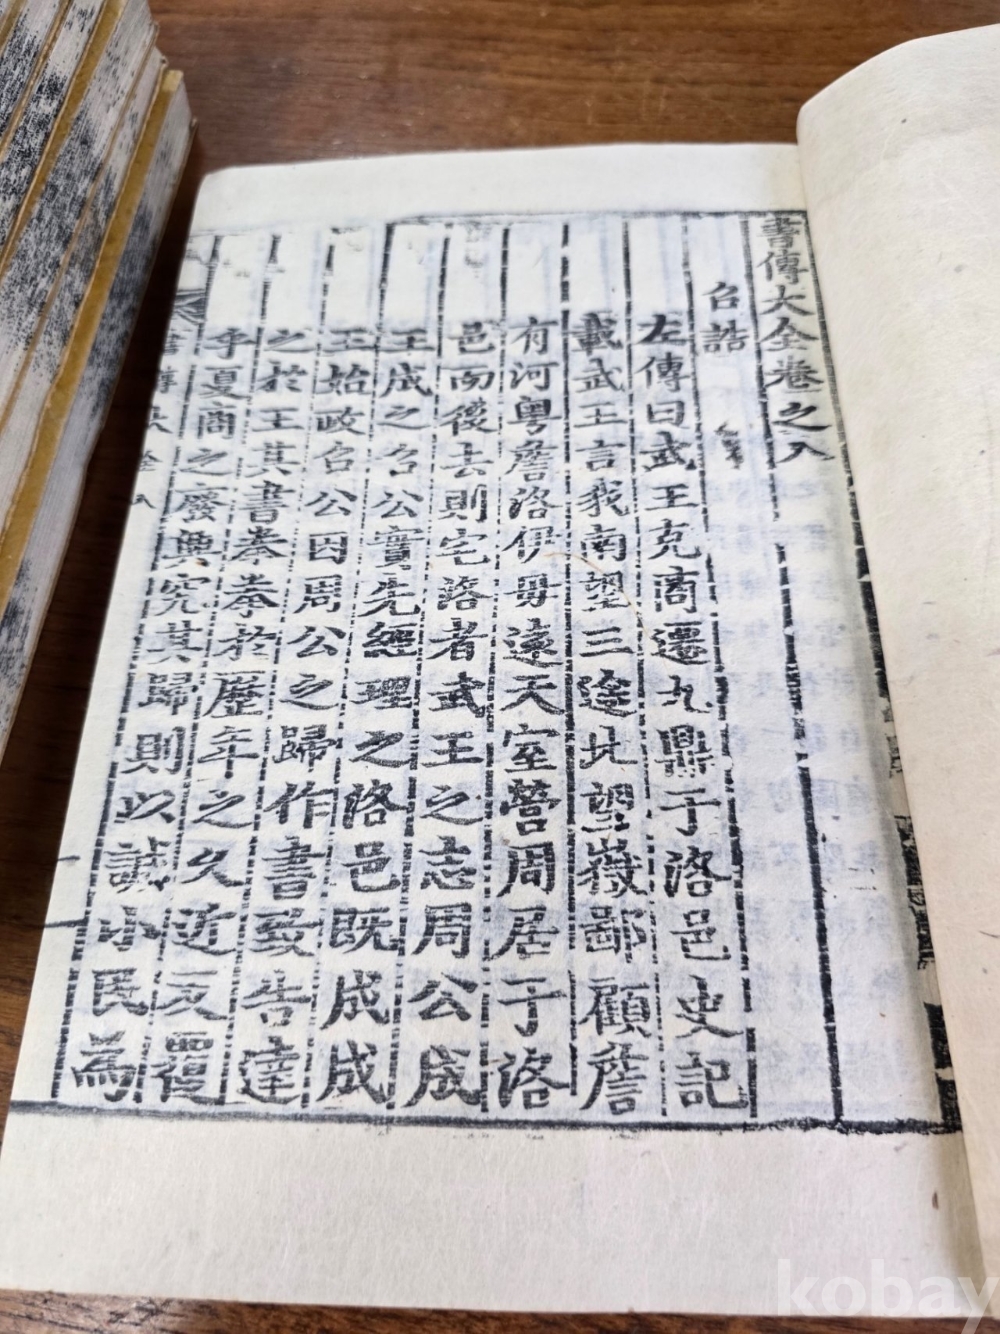 書傳大全卷之八
召誥
左傳曰武王克商遷九鼎于洛邑史記
載武王言我南望三途北望嶽鄙顧詹
有河粤詹洛伊毋遠天室營周居于洛
邑而後去則宅洛者武王之志周公成
王成之召公實先經理之洛邑既成成
王始政召公因周公之歸作書致告達
之於王其書拳拳於歷年之久近反覆
乎夏商之廢興究其歸則以諴小民爲
書傳大全八
kobay